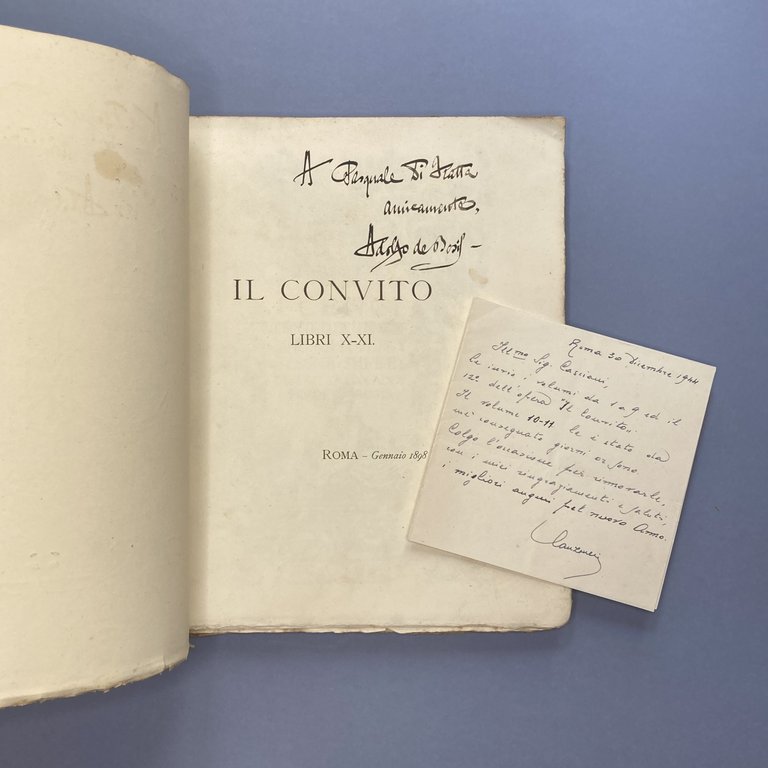 A Pasquale Di Fratta
amicamente,
Adolfo de Bosis –
IL CONVITO
LIBRI X-XI.
ROMA – Gennaio 1898
Roma 30 Dicembre 1944
Ill.mo Sig. Casciani,
le invio i volumi da 1 a 9 ed il
12° dell'opera "Il Convito".
Il volume 10-11 le è stato da
me consegnato giorni or sono
Colgo l'occasione per rinnovarle,
con i miei ringraziamenti e saluti,
i migliori auguri pel nuovo Anno.